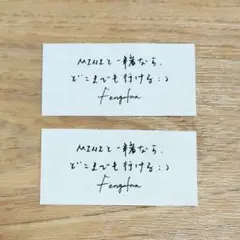 MINIと一緒なら、
どこまでも行ける:)
MINIと一緒なら、
どこまでも行ける:)